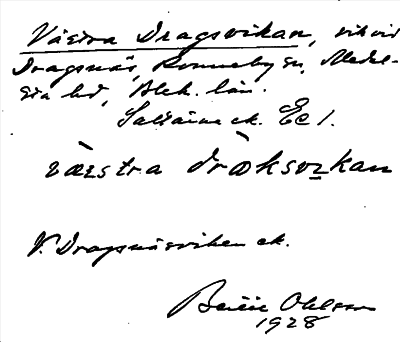 Västra Dragsvikan, vik vid
Dragsnäs, Ronneby sn, Medel-
sta hd, Blek. län.
ek. Ec 1.
väestra draksvikan
V. Dragsnäsviken ek.
Ohlsson
1928